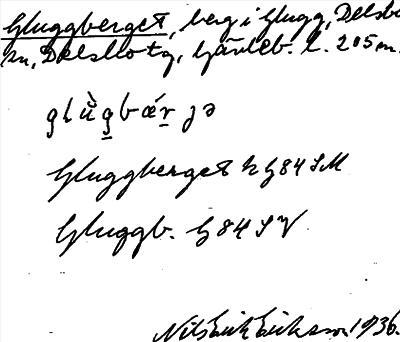 Gluggberget, berg i Glugg, Delsbo
sn, Delsbo tg, Gävleb. l. 205 m.
glùgbǽrjə
Gluggberget h G84 SM
Gluggb. G84 SV
Nils Erik Eriksson 1936.